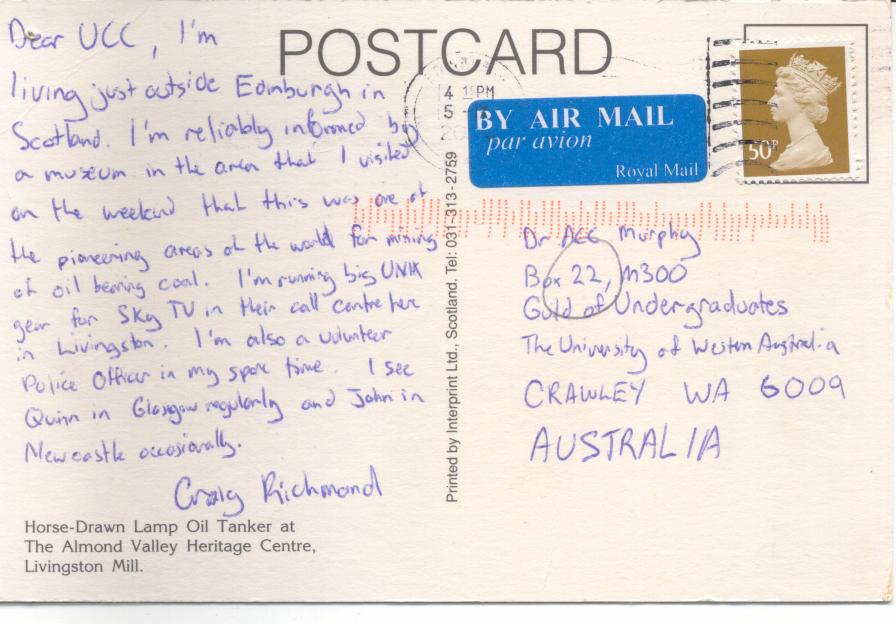 POSTCARD
Dear UCC, I'm
living just outside Edinburgh in
Scotland. I'm reliably informed by
a museum in the area that I visited
on the weekend that this was one of
the pioneering areas of the world for mining
of oil bearing coal. I'm running big UNIX
gear for Sky TV in their call centre here
in Livingston. I'm also a volunteer
Police Officer in my spare time. I see
Quinn in Glasgow regularly and John in
Newcastle occasionally.
Craig Richmond
Horse-Drawn Lamp Oil Tanker at
The Almond Valley Heritage Centre,
Livingston Mill.
Printed by Interprint Ltd., Scotland. Tel: 031-313-2759
4 15PM
5
20
BY AIR MAIL
par avion
Royal Mail
50P
Dr Acc Murphy
Box 22, M300
Guild of Undergraduates
The University of Western Australia
CRAWLEY WA 6009
AUSTRALIA